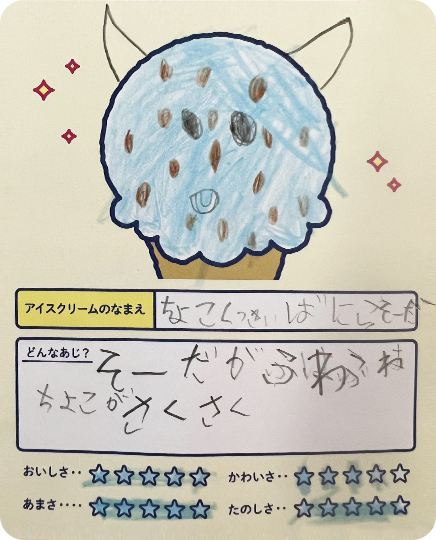 アイスクリームのなまえ
ちょこくっきいばにらそーだ
どんなあじ?
そーだがふわふわ
ちよこがさくさく
おいしさ‥
かわいさ‥
あまさ‥‥
たのしさ‥